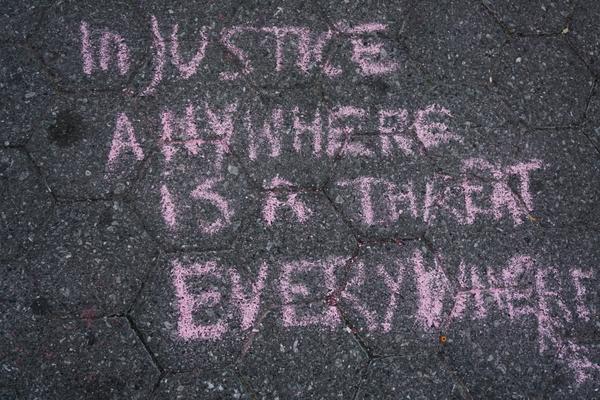 InJUSTICE
ANYWHERE
IS A THREAT
EVERYWHERE